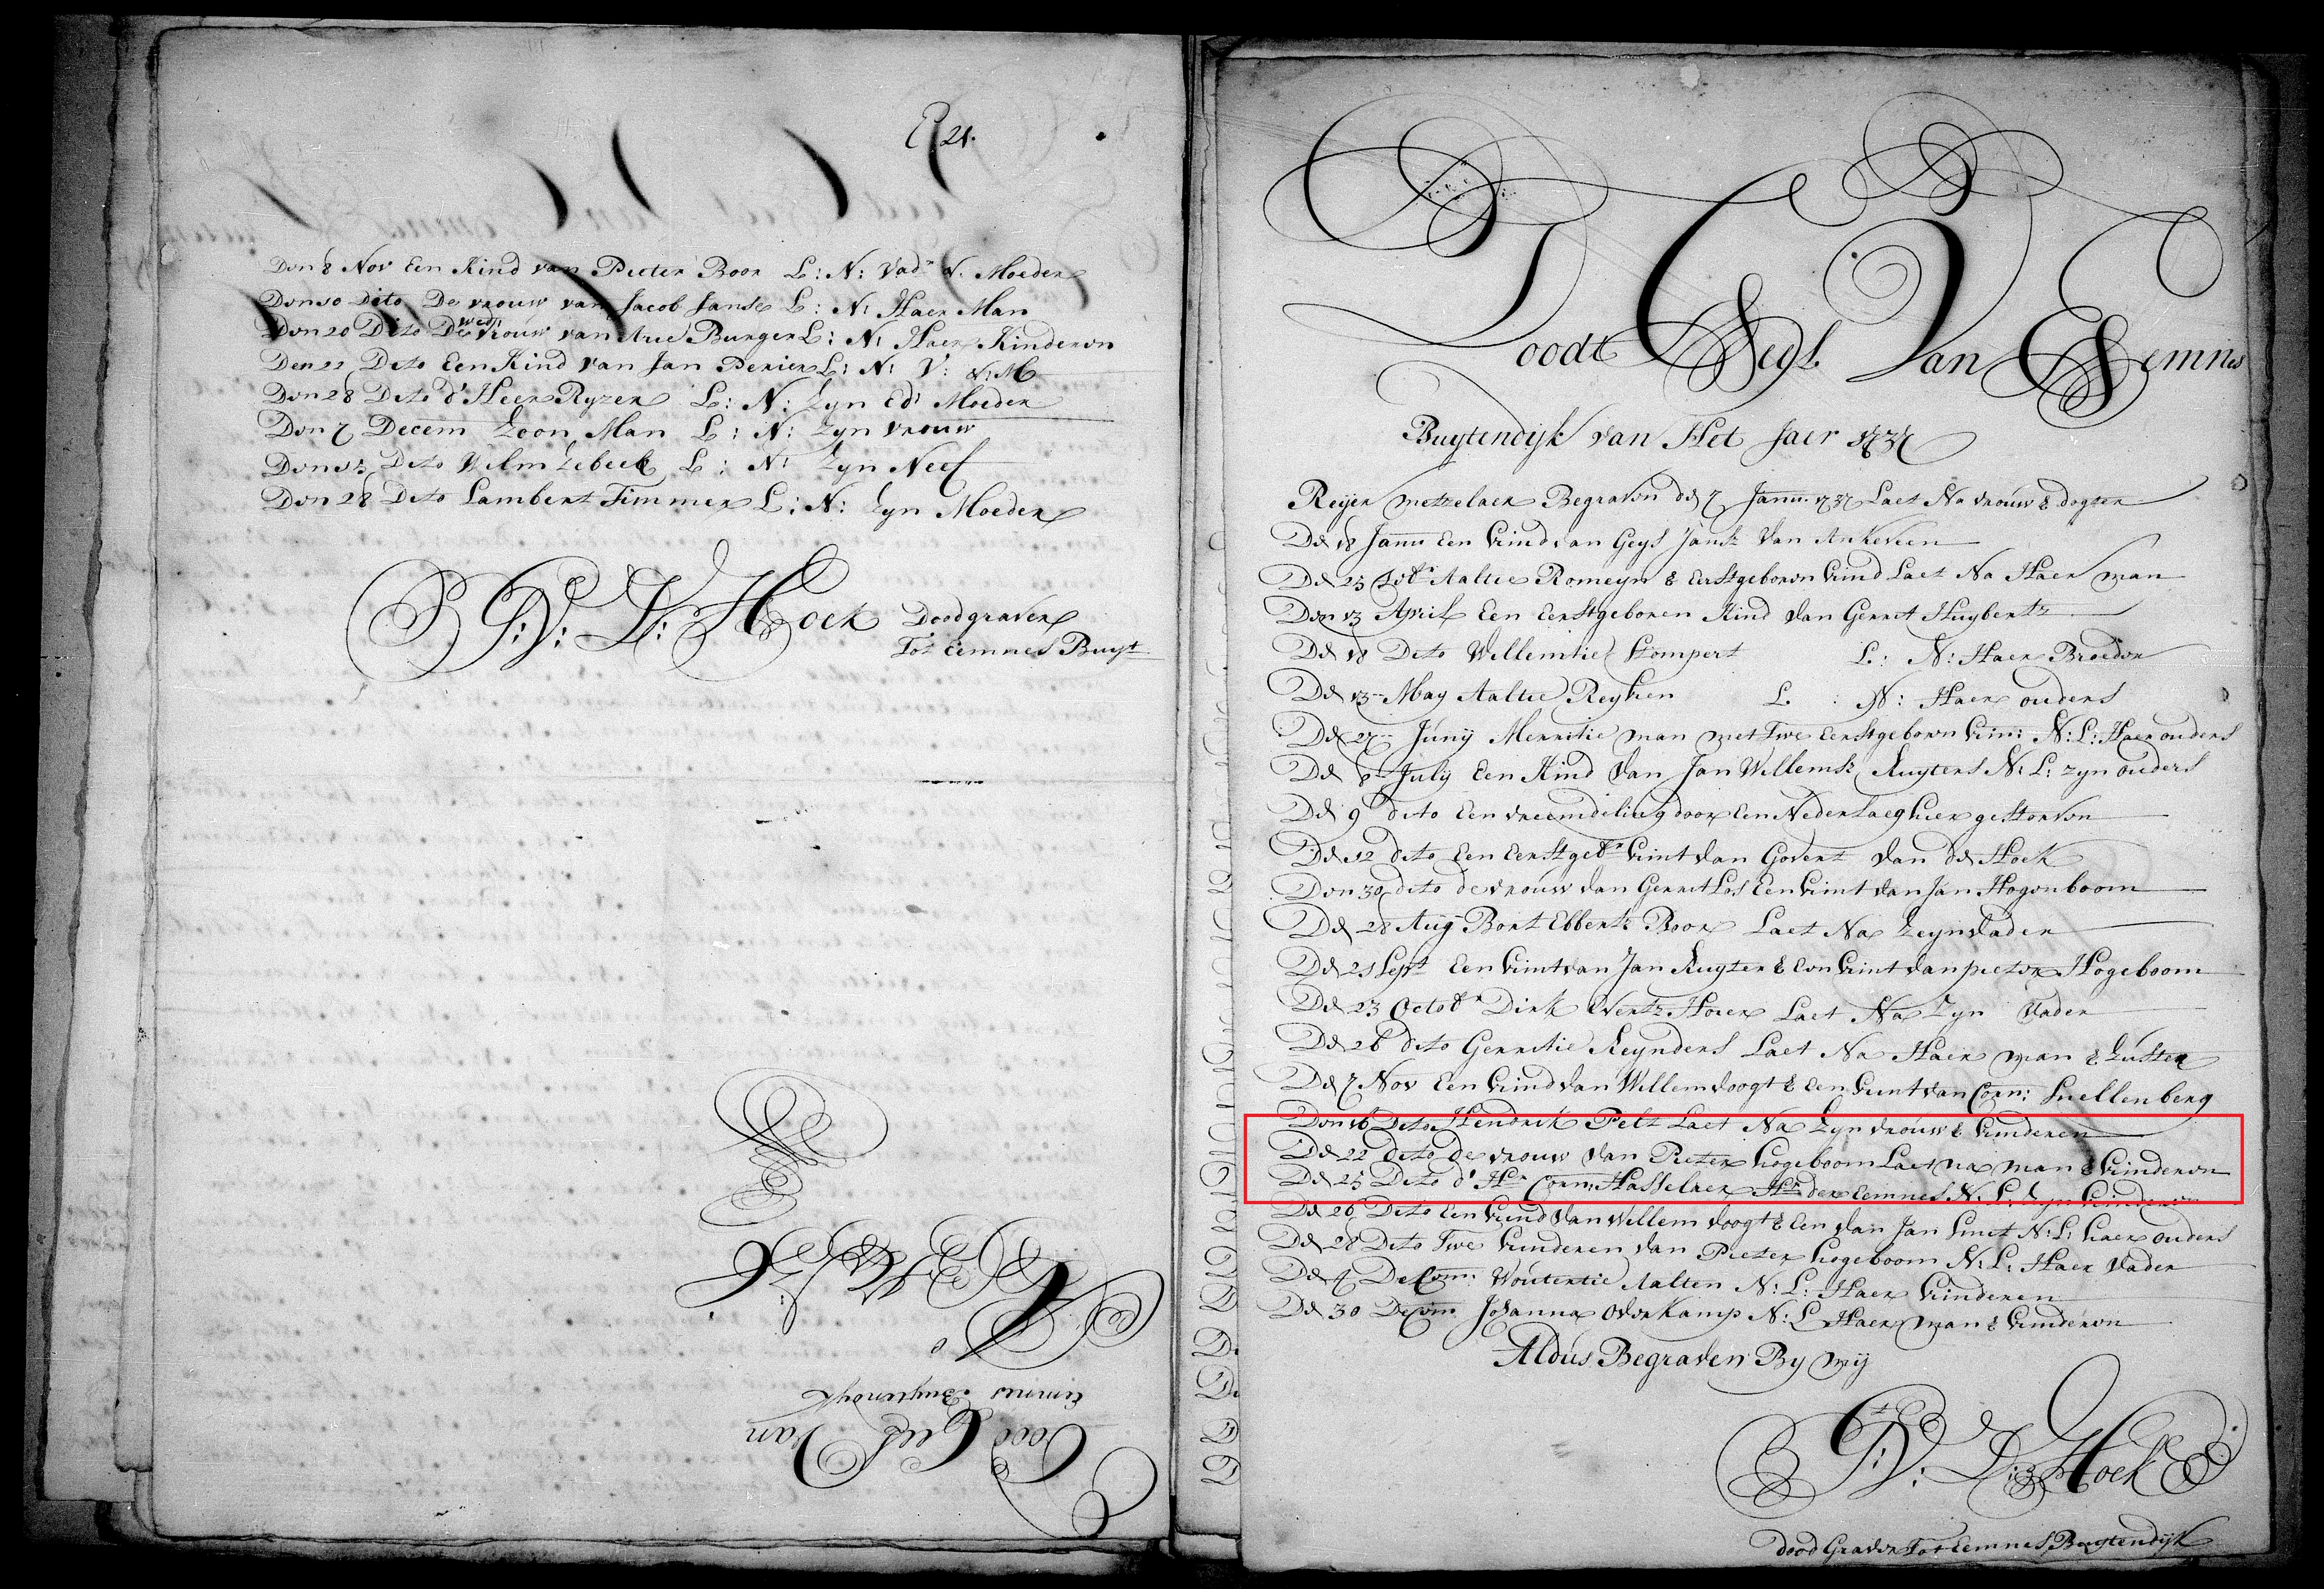 P 21.
Den 8 Nov Een Kind van Pieter Boor L: N: Vad.r & Moeder
Den 10 Dito De vrouw van Jacob Janse L: N: Haer Man
Den 20 Dito De wed: vrouw van Arie Burger L: N: Haer Kinderen
Den 22 Dito Een Kind van Jan Perier L: N: V: & M
Den 28 Dito d'Heer Ryzer L: N: Zyn Ed: Moeder
Den 7 Decem Zoon Man L: N: Zyn vrouw
Den 12 Dito Wilm Zebeek L: N: Zyn Neef
Den 28 Dito Lambert Timmer L: N: Zyn Moeder
P: V: D: Hoek Doodgraver
Tot eemnes Buyt
Eemnes Buytendyk
Dood Cedl Van
Doodt Cegl. Van Eemnes
Buytendyk van Het Jaer 1737
Reyer metzelaer Begraven de 7 Janu: 1737 Laet Na vrouw & dogter
De 18 Janu Een Kind van Geys Jansz Van Ankeveen
De 25 Aaltie Romeyn & Eerstgeboren Kind Laet Na Haer man
Den 13 April Een Eerstgeboren Kind Van Gerret Huybertz
De 18 Dito Willemtie Stompert L: N: Haer Broeder
De 13 May Aaltie Reyken L: N: Haer ouders
De 27 Junij Merritie man met Twe Eerstgeboren kin: N: L: Haer ouders
De 8 July Een Kind Van Jan Willemsz Ruyters N: L: zyn ouders
De 9 dito Een vreemdeling door Een Nederlaeg hier gestorven
De 12 dito Een Eerstgebr kint van Govert Van de Hoek
Den 30 dito de vrouw van Gerret Los Een kint van Jan Hogenboom
De 28 Aug Bort Ebbertz Boor Laet Na Zeyn Vader
De 21 Sept Een kint van Jan Ruyter & Een kint van pieter Hogeboom
De 23 Octobr Dirk Evertz Hoer Laet Na Zyn Vader
De 26 dito Gerritie Reynders Laet Na Haer man & Zuster
De 7 Nov Een kind van Willem Voogt & Een kint van Corn: Snellenberg
Den 16 Dito Hendrik Pelt Laet Na Zyn vrouw & kinderen
De 22 dito de vrouw van Pieter Hogeboom Laet na man & kinderen
De 25 Dito d' Hr Corn: Hasselaer Hr der Eemnes N: L: Zyn kinderen
De 26 Dito Een kind van Willem Voogt & Een van Jan Smet N: L: haer ouders
De 28 Dito Twe kinderen van Pieter hogeboom N: L: Haer Vader
De 4 Decem: Woutertie Aalten N: L: Haer kinderen
De 30 Decem Johanna Overkamp N: L Haer man & kinderen
Aldus Begraven By mij
P: V: D: Hoek
Dood Graver Tot Eemnes Buytendijk